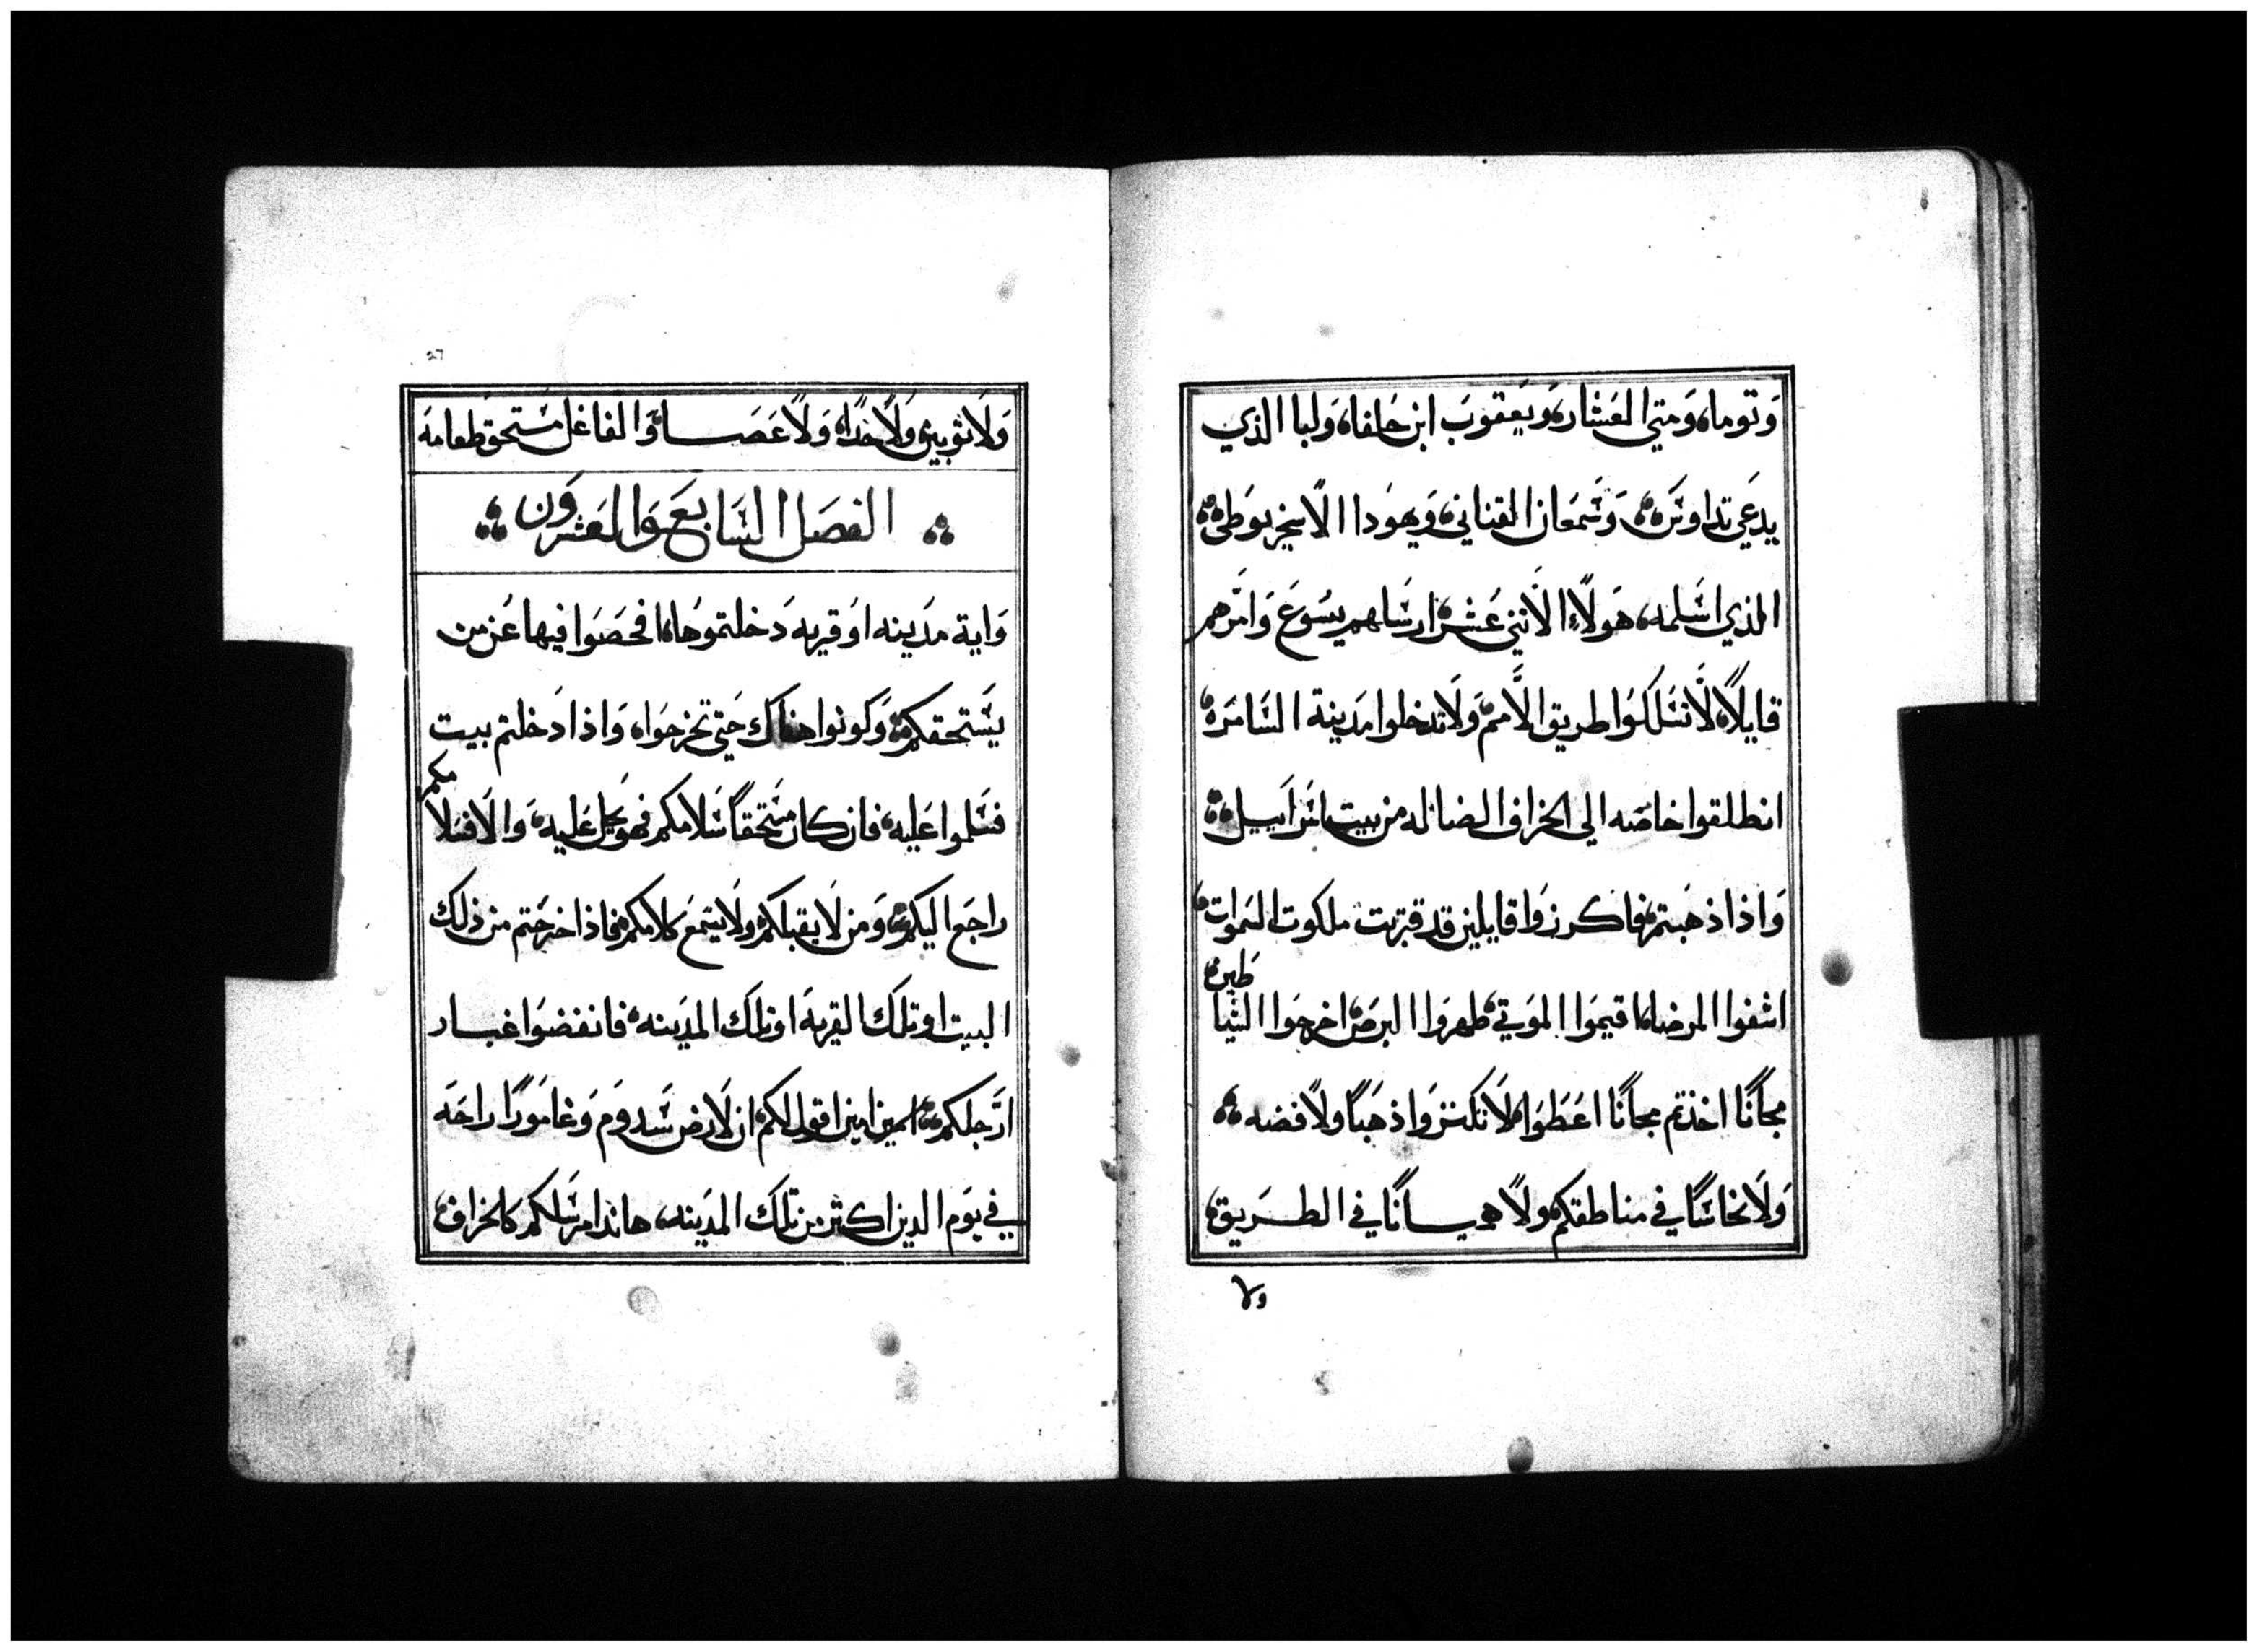 وَتوماه وَمتي العَشاره وَيَعقوَبَ ابن حَلفاه وَلبا الذي
يدعَي تداوسَ وَسَمعَان القناني وَيهوَدا الاسخريوَطي
الذي اسَلمه هَولاَء الاَثني عَشر ارسَلهم يسُوعَ وَامَرهم
قايلاً لاَ تسَلكوُا طريق الاَمم وَلاَ تدخلوا مَدينة السَامَره
انطلقوا خاصَه الي الخراف الضاله من بيت اسَراَييل
وَاذا ذهَبتم فاكرزوَا قايلين قد قربت ملكوت السَموات
اشفوا المرضاه اقيموَا الموَتي طهروَا البرصَ اخرجوَا الشيا
طين
مجاَنًا اخذتم مجانًا اعَطوَا لاَ تكنزوَا ذهَبًا ولاَ فضه
وَلاَ نحاسًا في مناطقكم ولاَ هميانًا في الطريق
ولا
وَلاَ ثوبين وَلاَ حذاه وَلاَ عَصَا وَالفاعَل مسَتحق طعامَه
الفصَل السَابعَ وَالعَشروَن
وَاية مدَينه اوَ قريه دَخلتموهُا افحَصَوا فيها عَن من
يسَتحقكم وَكونوا هناك حَتي تخرجوَا وَاذا دَخلتم بيت
فسَلموا عَليه فان كان مسَتحقاً سَلامكم فهوَ يحل عَليه وَالاَ فسلا
مكم
راجَع اليكم وَمن لاَ يقبلكم ولاَ يسمَع كلامكم فاذا خرجَتم من ذلك
البيت او تلك القريهَ او تلكَ المدَينه فانفضوَا غبار
ارَجلكم امين امين اقول لكم ان لاَرض سَدومَ وَغاموَرًا راحَه
في يوَم الدين اكثر من تلكَ المدَينه هانذا مرسَلكم كالخراف